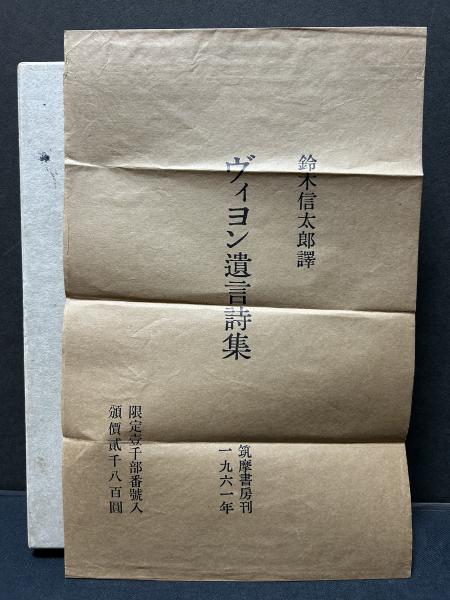 鈴木信太郎譯
ヴィヨン遺言詩集
筑摩書房刊
一九六一年
限定壹千部番號入
頒價貳千八百圓